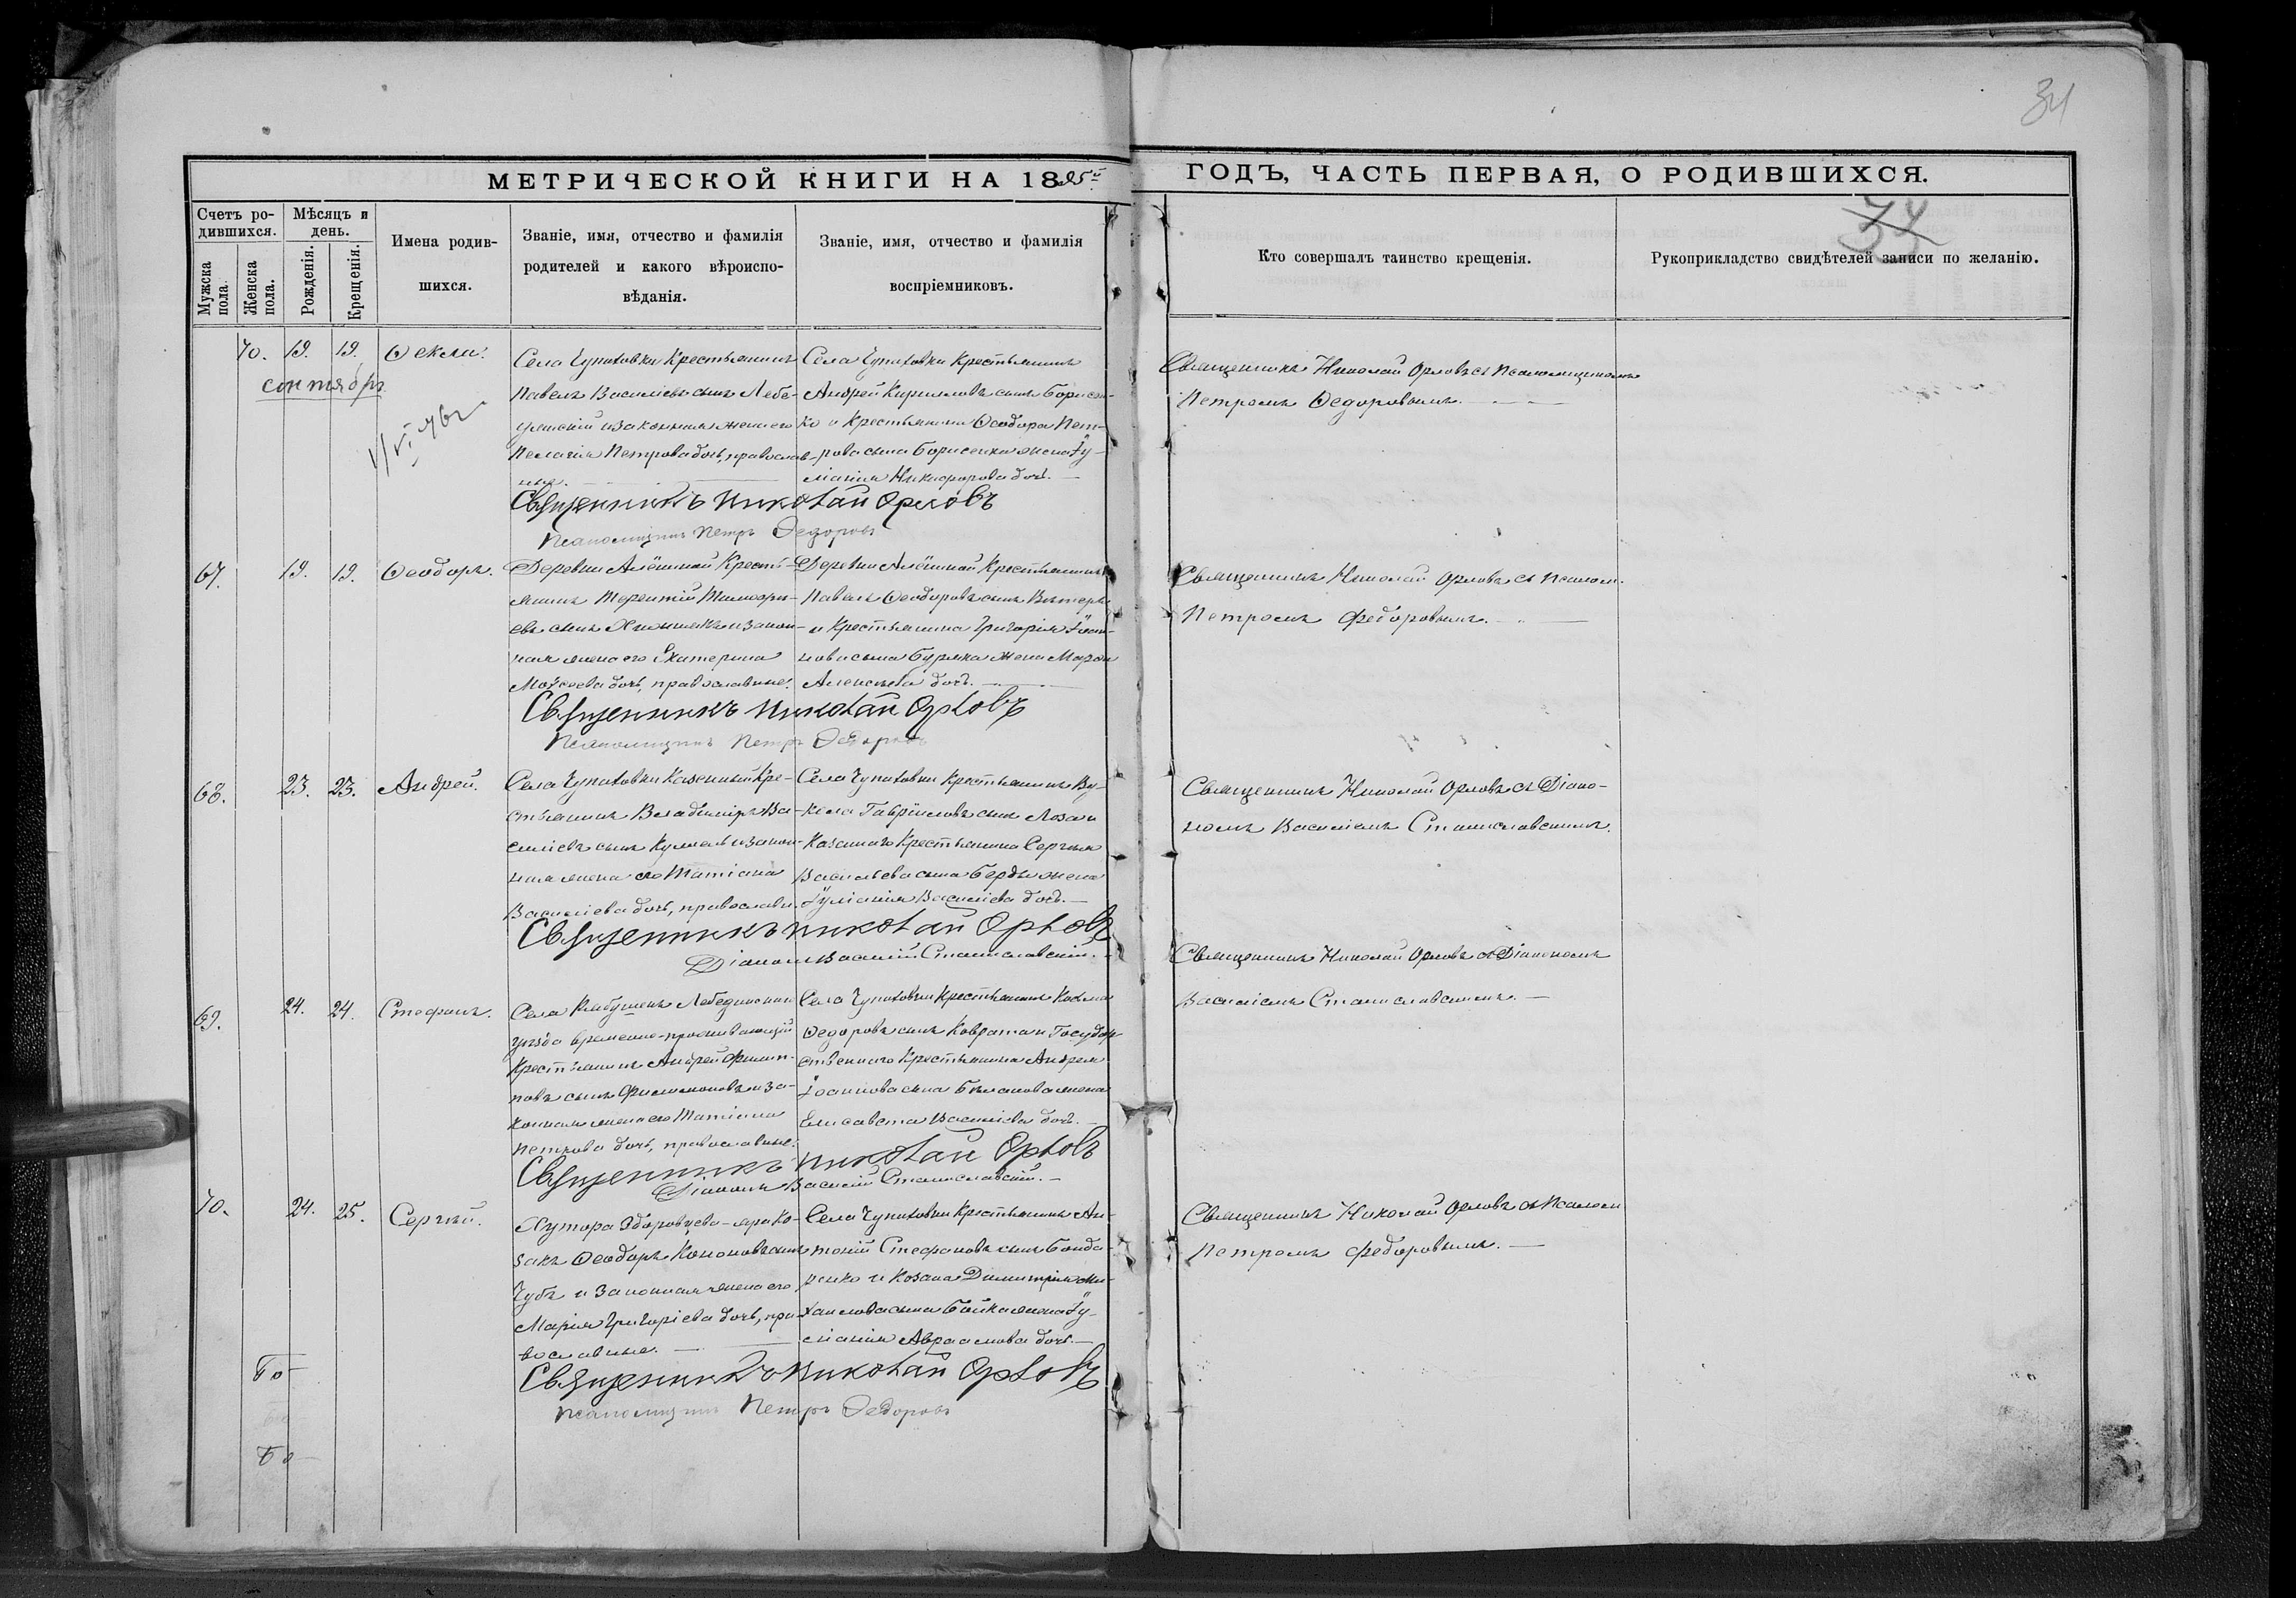 34
МЕТРИЧЕСКОЙ КНИГИ НА 1895й ГОДЪ, ЧАСТЬ ПЕРВАЯ, О РОДИВШИХСЯ.
34
Счетъ ро-
дившихся.
Мужска
пола.
Женска
пола.
Мѣсяцъ и
день.
Рожденія.
Крещенія.
Имена родив-
шихся.
Званіе, имя, отчество и фамилія
родителей и какого вѣроиспо-
вѣданія.
Званіе, имя, отчество и фамилія
воспріемниковъ.
Кто совершалъ таинство крещенія.
Рукоприкладство свидѣтелей записи по желанію.
70. 19. 19.
сентябрь
Ѳекла.
Села Чупаховки Крестьянинъ
Павелъ Василіевъ сынъ Лебе-
динскій и законная жена его
Пелагія Петрова дочь, православ-
ные.
Села Чупаховки Крестьянинъ
Андрей Кирилловъ сынъ Борисен-
ко и Крестьянина Ѳеодора Пет-
рова сына Борисенка жена Іу-
ліанія Никифорова дочь.
Священникъ Николай Орловъ
Псаломщикъ Петръ Ѳедоровъ
Священникъ Николай Орловъ съ Псаломщикомъ
Петромъ Ѳедоровымъ.
67. 19. 19.
Ѳеодоръ.
Деревни Алёшной Кресть-
янинъ Терентій Тимоѳеи-
евъ сынъ и закон-
ная жена его Екатерина
Моѵсеева дочь, православные.
Деревни Алёшной Крестьянинъ
Павелъ Ѳеодоровъ сынъ
и Крестьянина Григорія Іоан-
нова сына Буряка жена Марѳа
Алексѣева дочь.
Священникъ Николай Орловъ
Псаломщикъ Петръ Ѳедоровъ
Священникъ Николай Орловъ съ Псалом.
Петромъ Федоровымъ.
68. 23. 23.
Андрей.
Села Чупаховки Казенный Кре-
стьянинъ Владиміръ Ва-
силіевъ сынъ и закон-
ная жена его Татіана
Василіева дочь, православн.
Села Чупаховки Крестьянинъ Ву-
кола Гавріиловъ сынъ Лоза и
Казеннаго Крестьянина Сергѣя
Васильева сына Берды жена
Іуліанія Василіева дочь.
Священникъ Николай Орловъ
Діаконъ Василій Станиславскій.
Священникъ Николай Орловъ съ Діако-
номъ Василіемъ Станиславскимъ.
69. 24. 24.
Стефанъ.
Села Лебединскаго
уѣзда временно-проживающій
Крестьянинъ Андрей Филип-
повъ сынъ Филимоновъ и за-
конная жена его Татіана
Петрова дочь, православные.
Села Чупаховки Крестьянинъ Козьма
Ѳедоровъ сынъ Ковратъ и Государ-
ственнаго Крестьянина Андрея
Іоаннова сына Бѣланова жена
Елисавета Василіева дочь.
Священникъ Николай Орловъ
Діаконъ Василій Станиславскій.
Священникъ Николай Орловъ съ Діакономъ
Василіемъ Станиславскимъ.
70. 24. 25.
Сергѣй.
Хутора яра Ко-
закъ Ѳеодоръ Кононовъ сынъ
Чубъ и законная жена его
Марія Григоріева дочь, пра-
вославные.
Села Чупаховки Крестьянинъ Ан-
тоній Стефановъ сынъ Бонда-
ренко и Козака Димитрія Ми-
хаилова сына Бойка жена Іу-
ліанія Авраамова дочь.
Священникъ Николай Орловъ
Псаломщикъ Петръ Ѳедоровъ
Священникъ Николай Орловъ съ Псалом
Петромъ Федоровымъ.